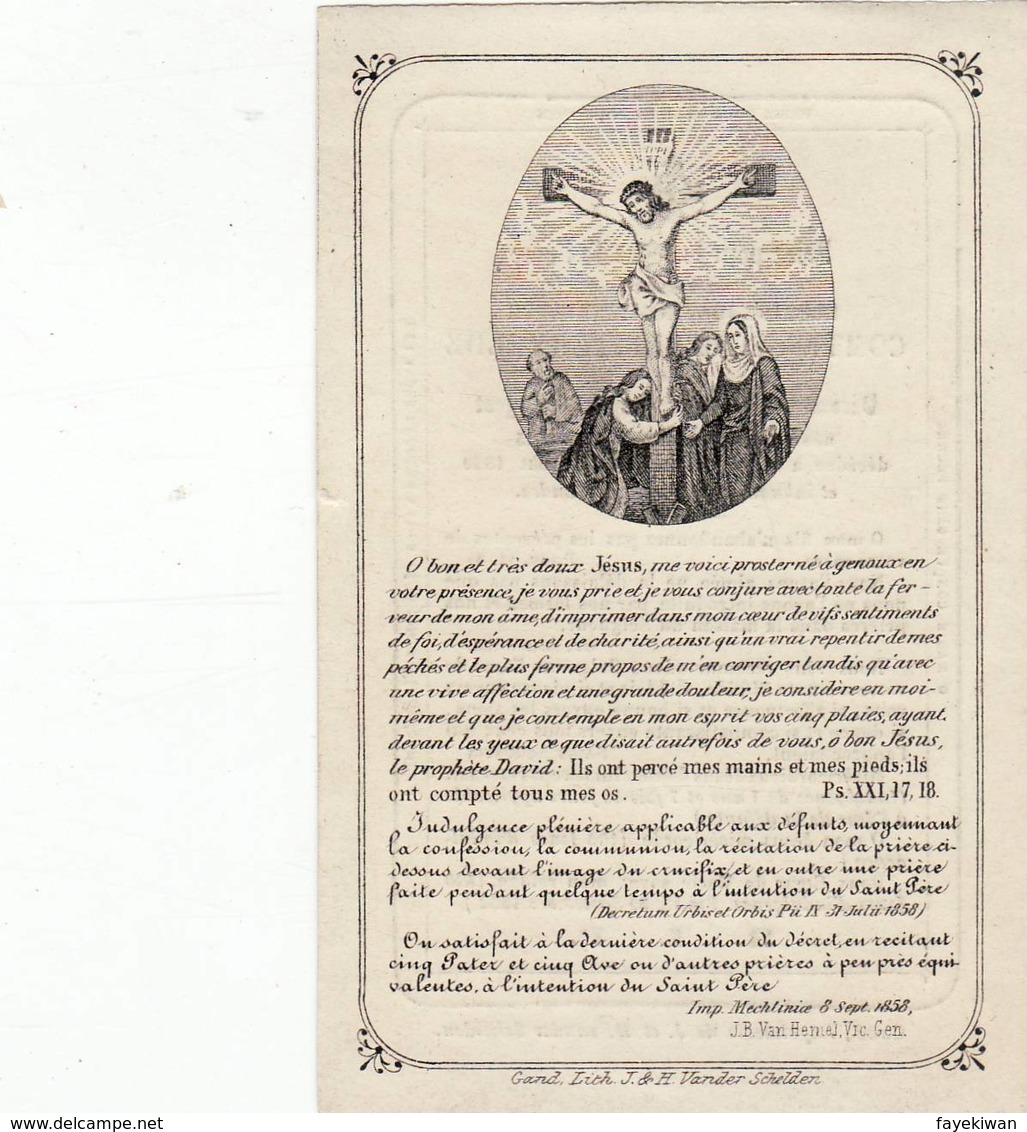 O bon et très doux Jésus, me voici prosterné à genoux en
votre présence, je vous prie et je vous conjure avec toute la fer-
veur de mon âme, d'imprimer dans mon cœur de vifs sentiments
de foi, d'espérance et de charité, ainsi qu'un vrai repentir de mes
péchés et le plus ferme propos de m'en corriger tandis qu'avec
une vive affection et une grande douleur, je considère en moi-
même et que je contemple en mon esprit vos cinq plaies, ayant
devant les yeux ce que disait autrefois de vous, ô bon Jésus,
le prophète David: Ils ont percé mes mains et mes pieds; ils
ont compté tous mes os. Ps. XXI, 17, 18.
Indulgence plénière applicable aux défunts, moyennant
la confession, la communion, la récitation de la prière ci-
dessous devant l'image du crucifix, et en outre une prière
faite pendant quelque temps à l'intention du Saint Père
(Decretum Urbis et Orbis Pii IX 31 Julii 1858)
On satisfait à la dernière condition du décret, en recitant
cinq Pater et cinq Ave ou d'autres prières à peu près équi-
valentes, à l'intention du Saint Père
Imp. Mechliniæ 8 Sept. 1858,
J.B. Van Hemel, Vic. Gen.
Gand, Lith. J. & H. Vander Schelden
delcampe.net
fayekiwan